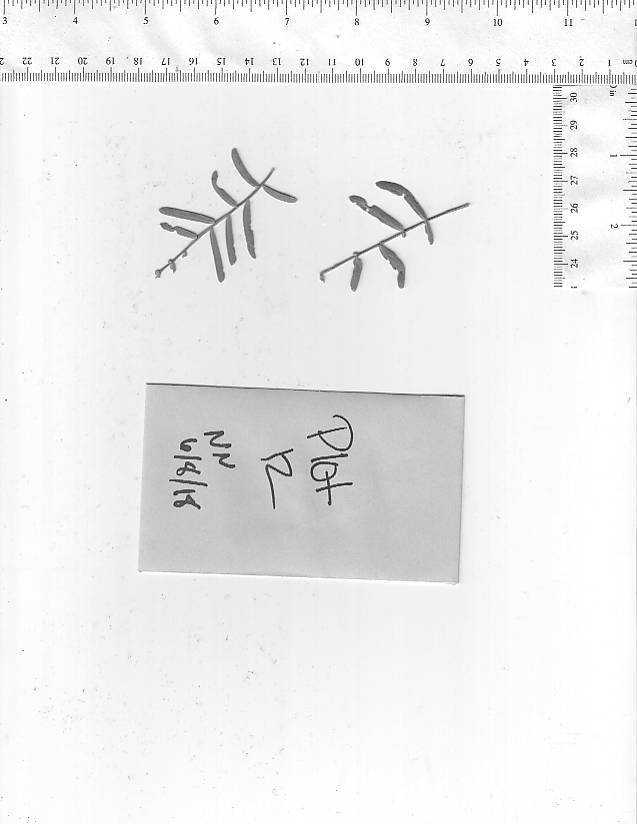 3 4 5 6 7 8 9 10 11
22 21 20 19 18 17 16 15 14 13 12 11 10 9 8 7 6 5 4 3 2 1 cm
in
30
29
28 1
27
26
25 2
24
Plot
12
NN
6/8/18